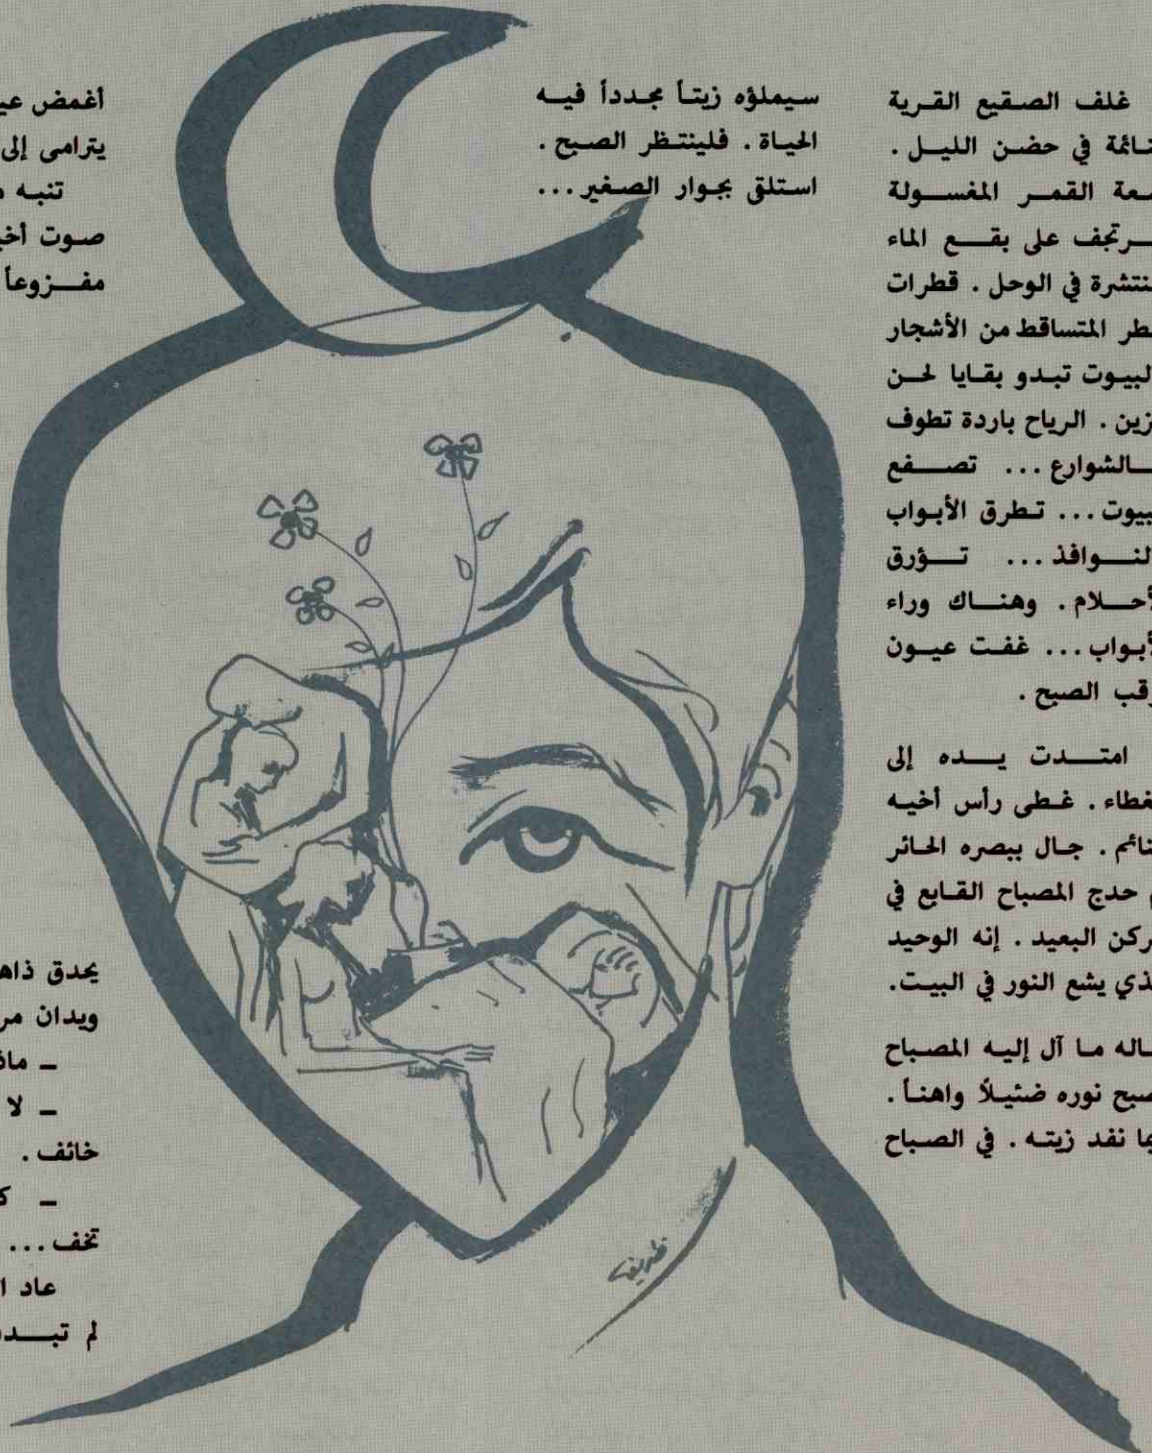 غلف الصقيع القرية
ـنائمة في حضن الليل .
ـعة القمر المغسولة
ـرتجف على بقع الماء
ـنتشرة في الوحل . قطرات
ـطر المتساقط من الأشجار
ـلبيوت تبدو بقايا لحن
ـزين . الرياح باردة تطوف
ـالشوارع ... تصفع
ـبيوت ... تطرق الأبواب
ـالنوافذ ... تؤرق
ـأحلام . وهناك وراء
ـأبواب ... غفت عيون
ـرقب الصبح .
امتدت يده إلى
ـغطاء . غطى رأس أخيه
ـنائم . جال ببصره الحائر
ـم حدج المصباح القابع في
ـركن البعيد . إنه الوحيد
ـذي يشع النور في البيت.
ـاله ما آل إليه المصباح
ـصبح نوره ضئيلاً واهناً .
ـا نفد زيته . في الصباح
سيملؤه زيتاً مجدداً فيه
الحياة . فلينتظر الصبح .
استلقى بجوار الصغير ...
أغمض عيـ
يترامى إلى
تنبه
صوت أخيـ
مفزوعاً
يحدق ذاهـ
ويدان مر
ـ ماذ
ـ لا
خائف .
ـ كـ
تخف ...
عاد ا
لم تبد